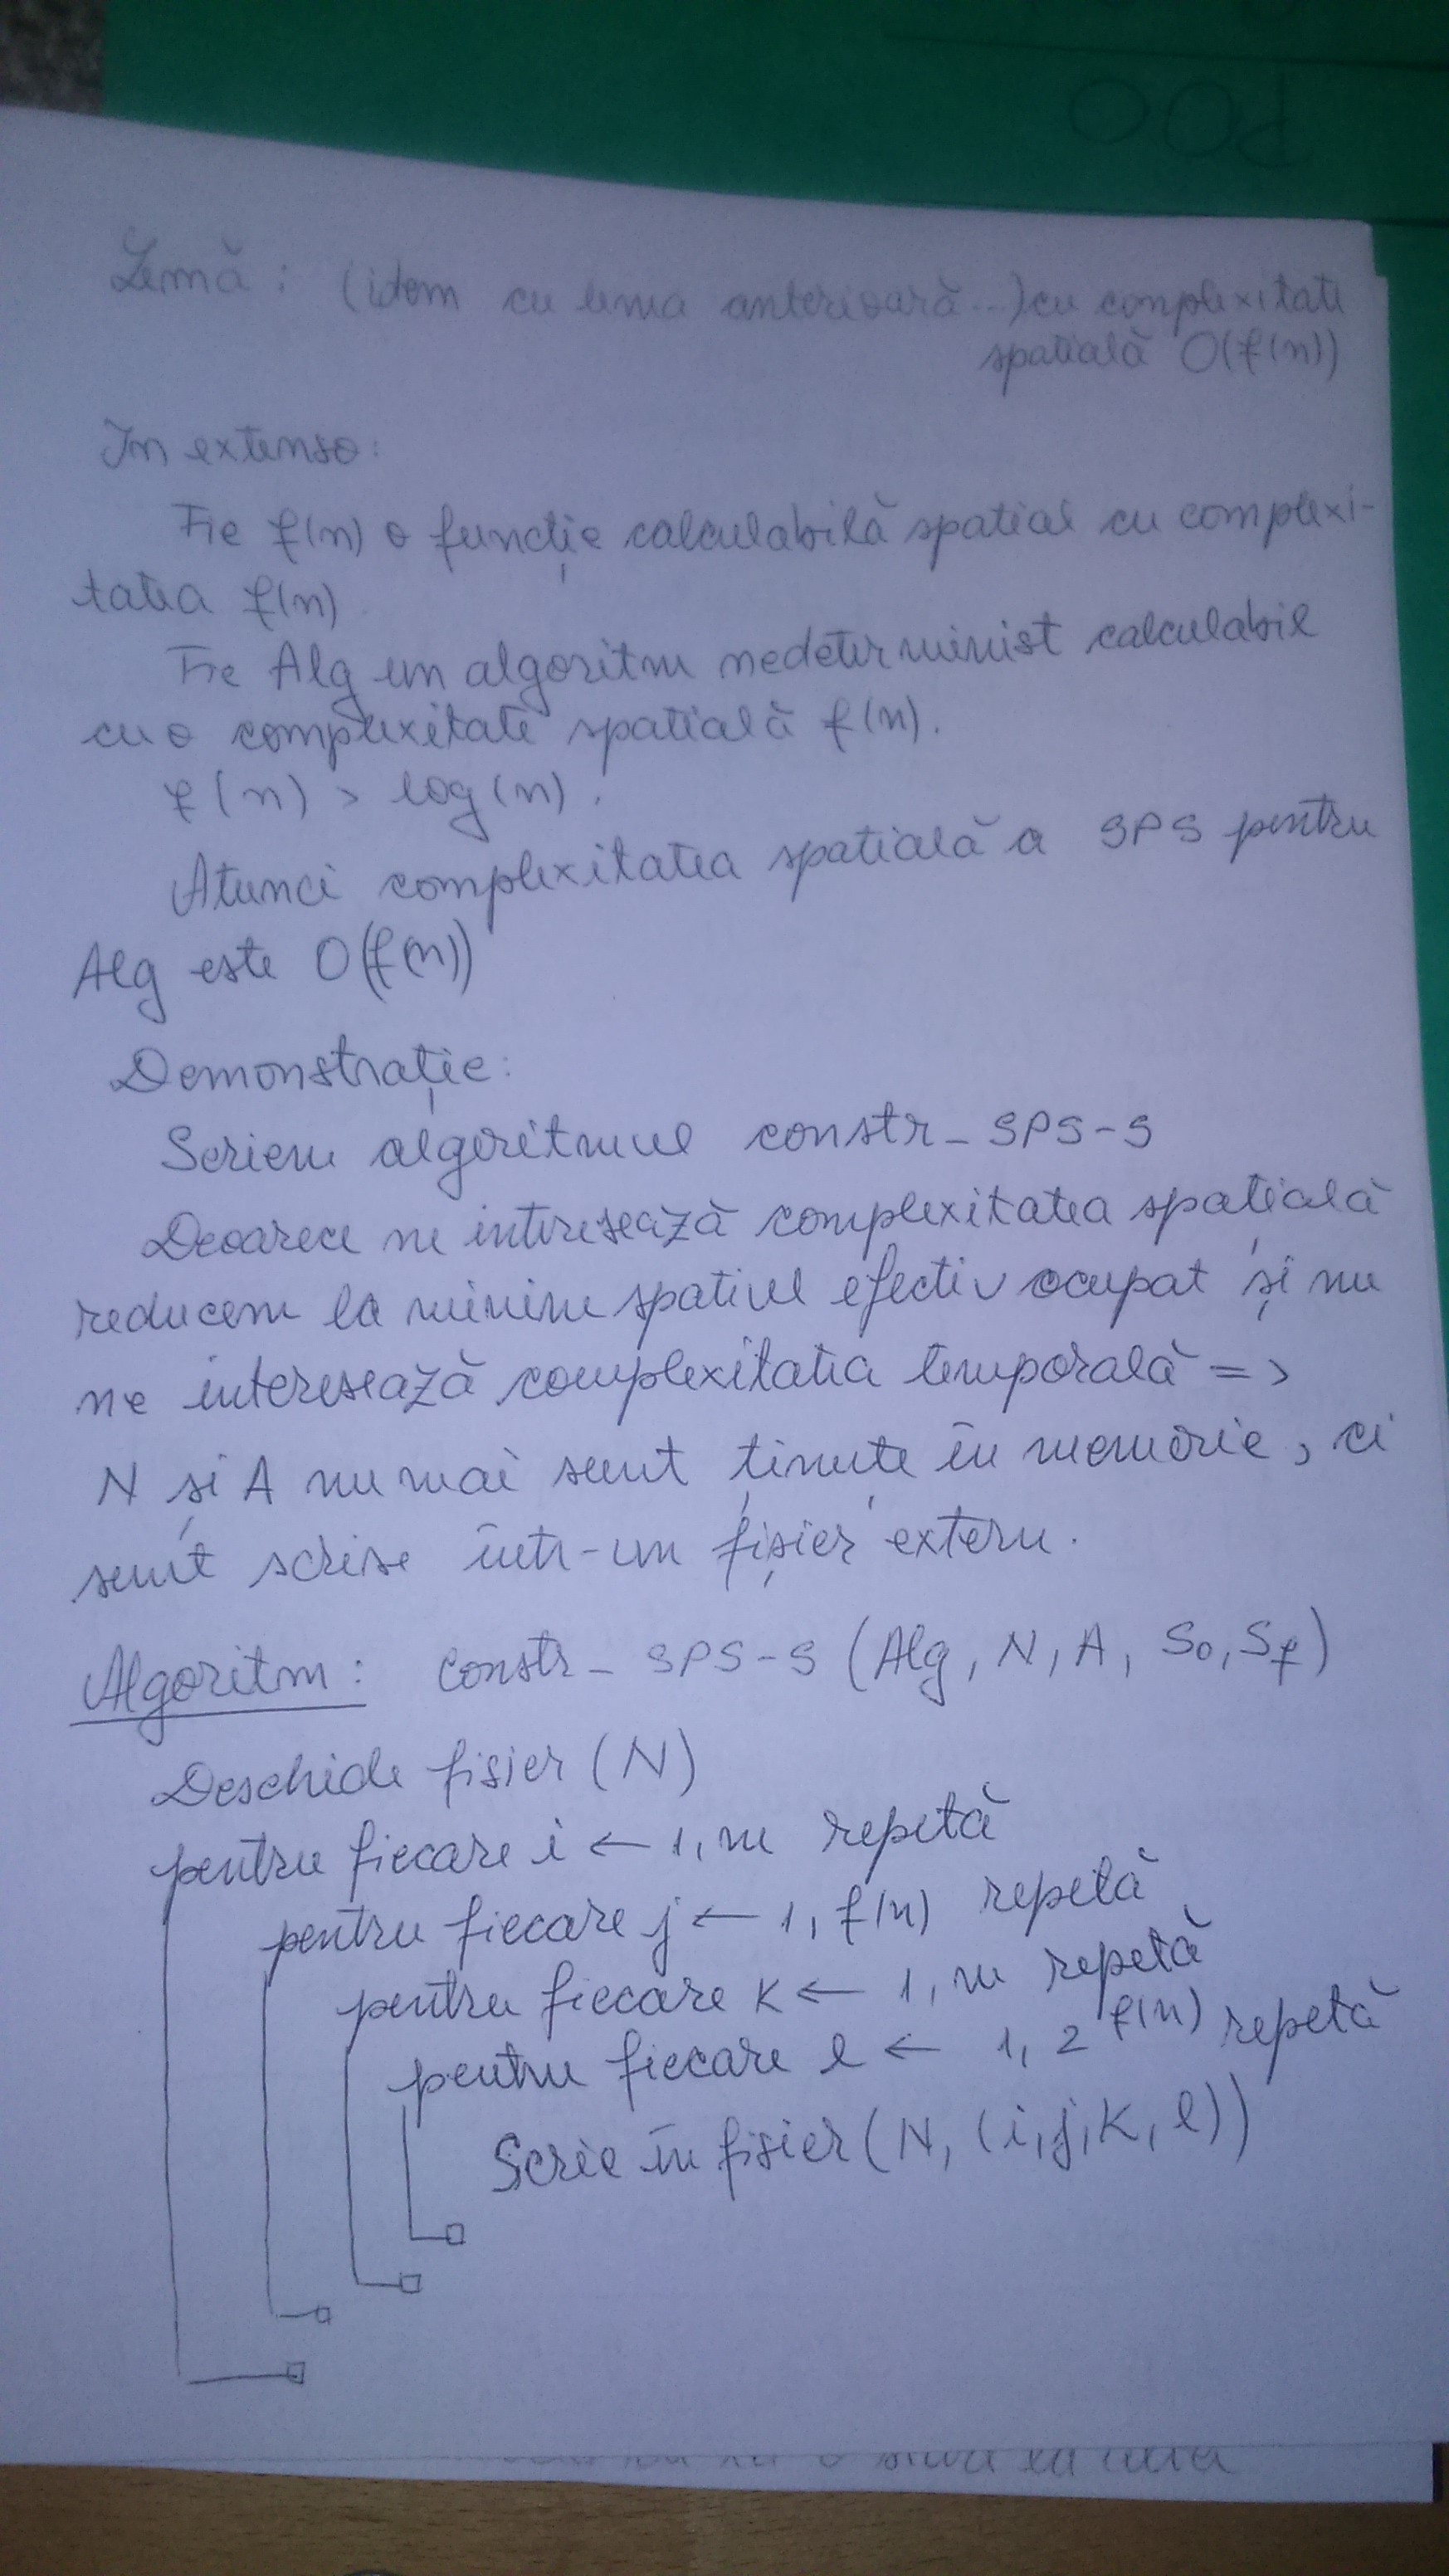 POO
Lemă: (idem cu lema anterioară...) cu complexitate
spatială O(f(n))
In extenso:
Fie f(n) o funcție calculabilă spatial cu complexi-
tatea f(n)
Fie Alg un algoritm nedeterminist calculabil
cu o complexitate spatială f(n).
f(n) > log(n).
Atunci complexitatea spatială a SPS pentru
Alg este O(f(n))
Demonstrație:
Scriem algoritmul constr_SPS-S
Deoarece ne interesează complexitatea spațială
reducem la minim spatiul efectiv ocupat și nu
ne interesează complexitatea temporală =>
N și A nu mai sunt ținute în memorie, ci
sunt scrise într-un fișier extern.
Algoritm: constr_SPS-S (Alg, N, A, S0, Sf)
Deschide fisier (N)
pentru fiecare i ← 1, m repetă
pentru fiecare j ← 1, f(n) repetă
pentru fiecare k ← 1, n repetă
pentru fiecare l ← 1, 2^f(n) repetă
Scrie în fisier (N, (i, j, k, l))